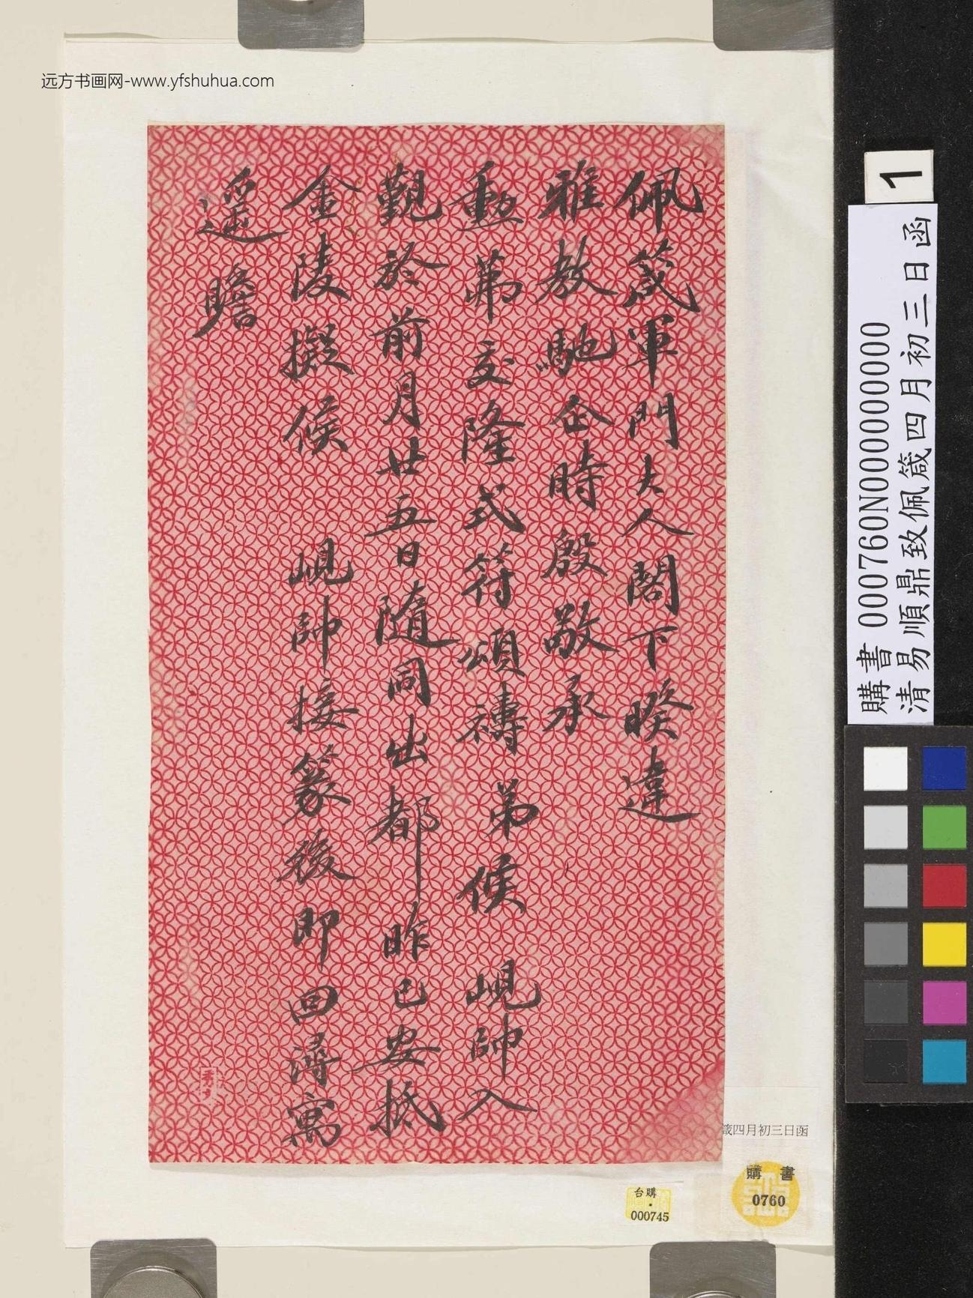 远方书画网-www.yfshuhua.com
佩箴軍門大人閣下暌違
雅教馳企時殷敬承
勳第交隆式符頌禱弟候 峴帥入
觀於前月廿五日隨同出都昨已安抵
金陵擬候 峴帥接篆後即回潯寓
遥瞻
1
購書 000760N000000000
清易順鼎致佩箴四月初三日函
箴四月初三日函
購書
0760
台購
000745